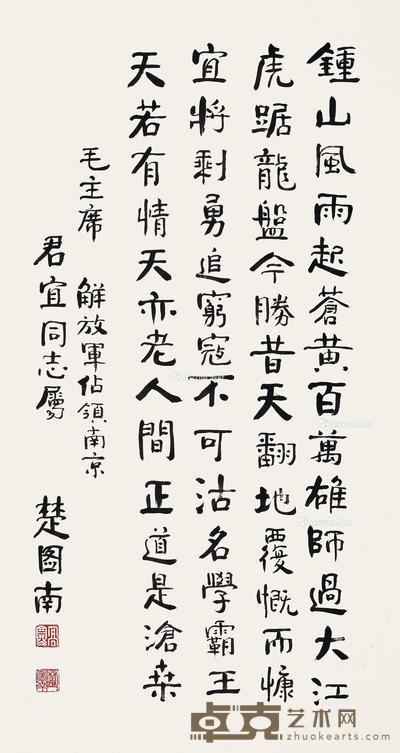 鍾山風雨起蒼黄百萬雄師過大江
虎踞龍盤今勝昔天翻地覆慨而慷
宜將剩勇追窮寇不可沽名學霸王
天若有情天亦老人間正道是滄桒
毛主席 解放軍佔領南京
君宜同志屬
楚圖南
卓克艺术网
www.zhuokearts.com